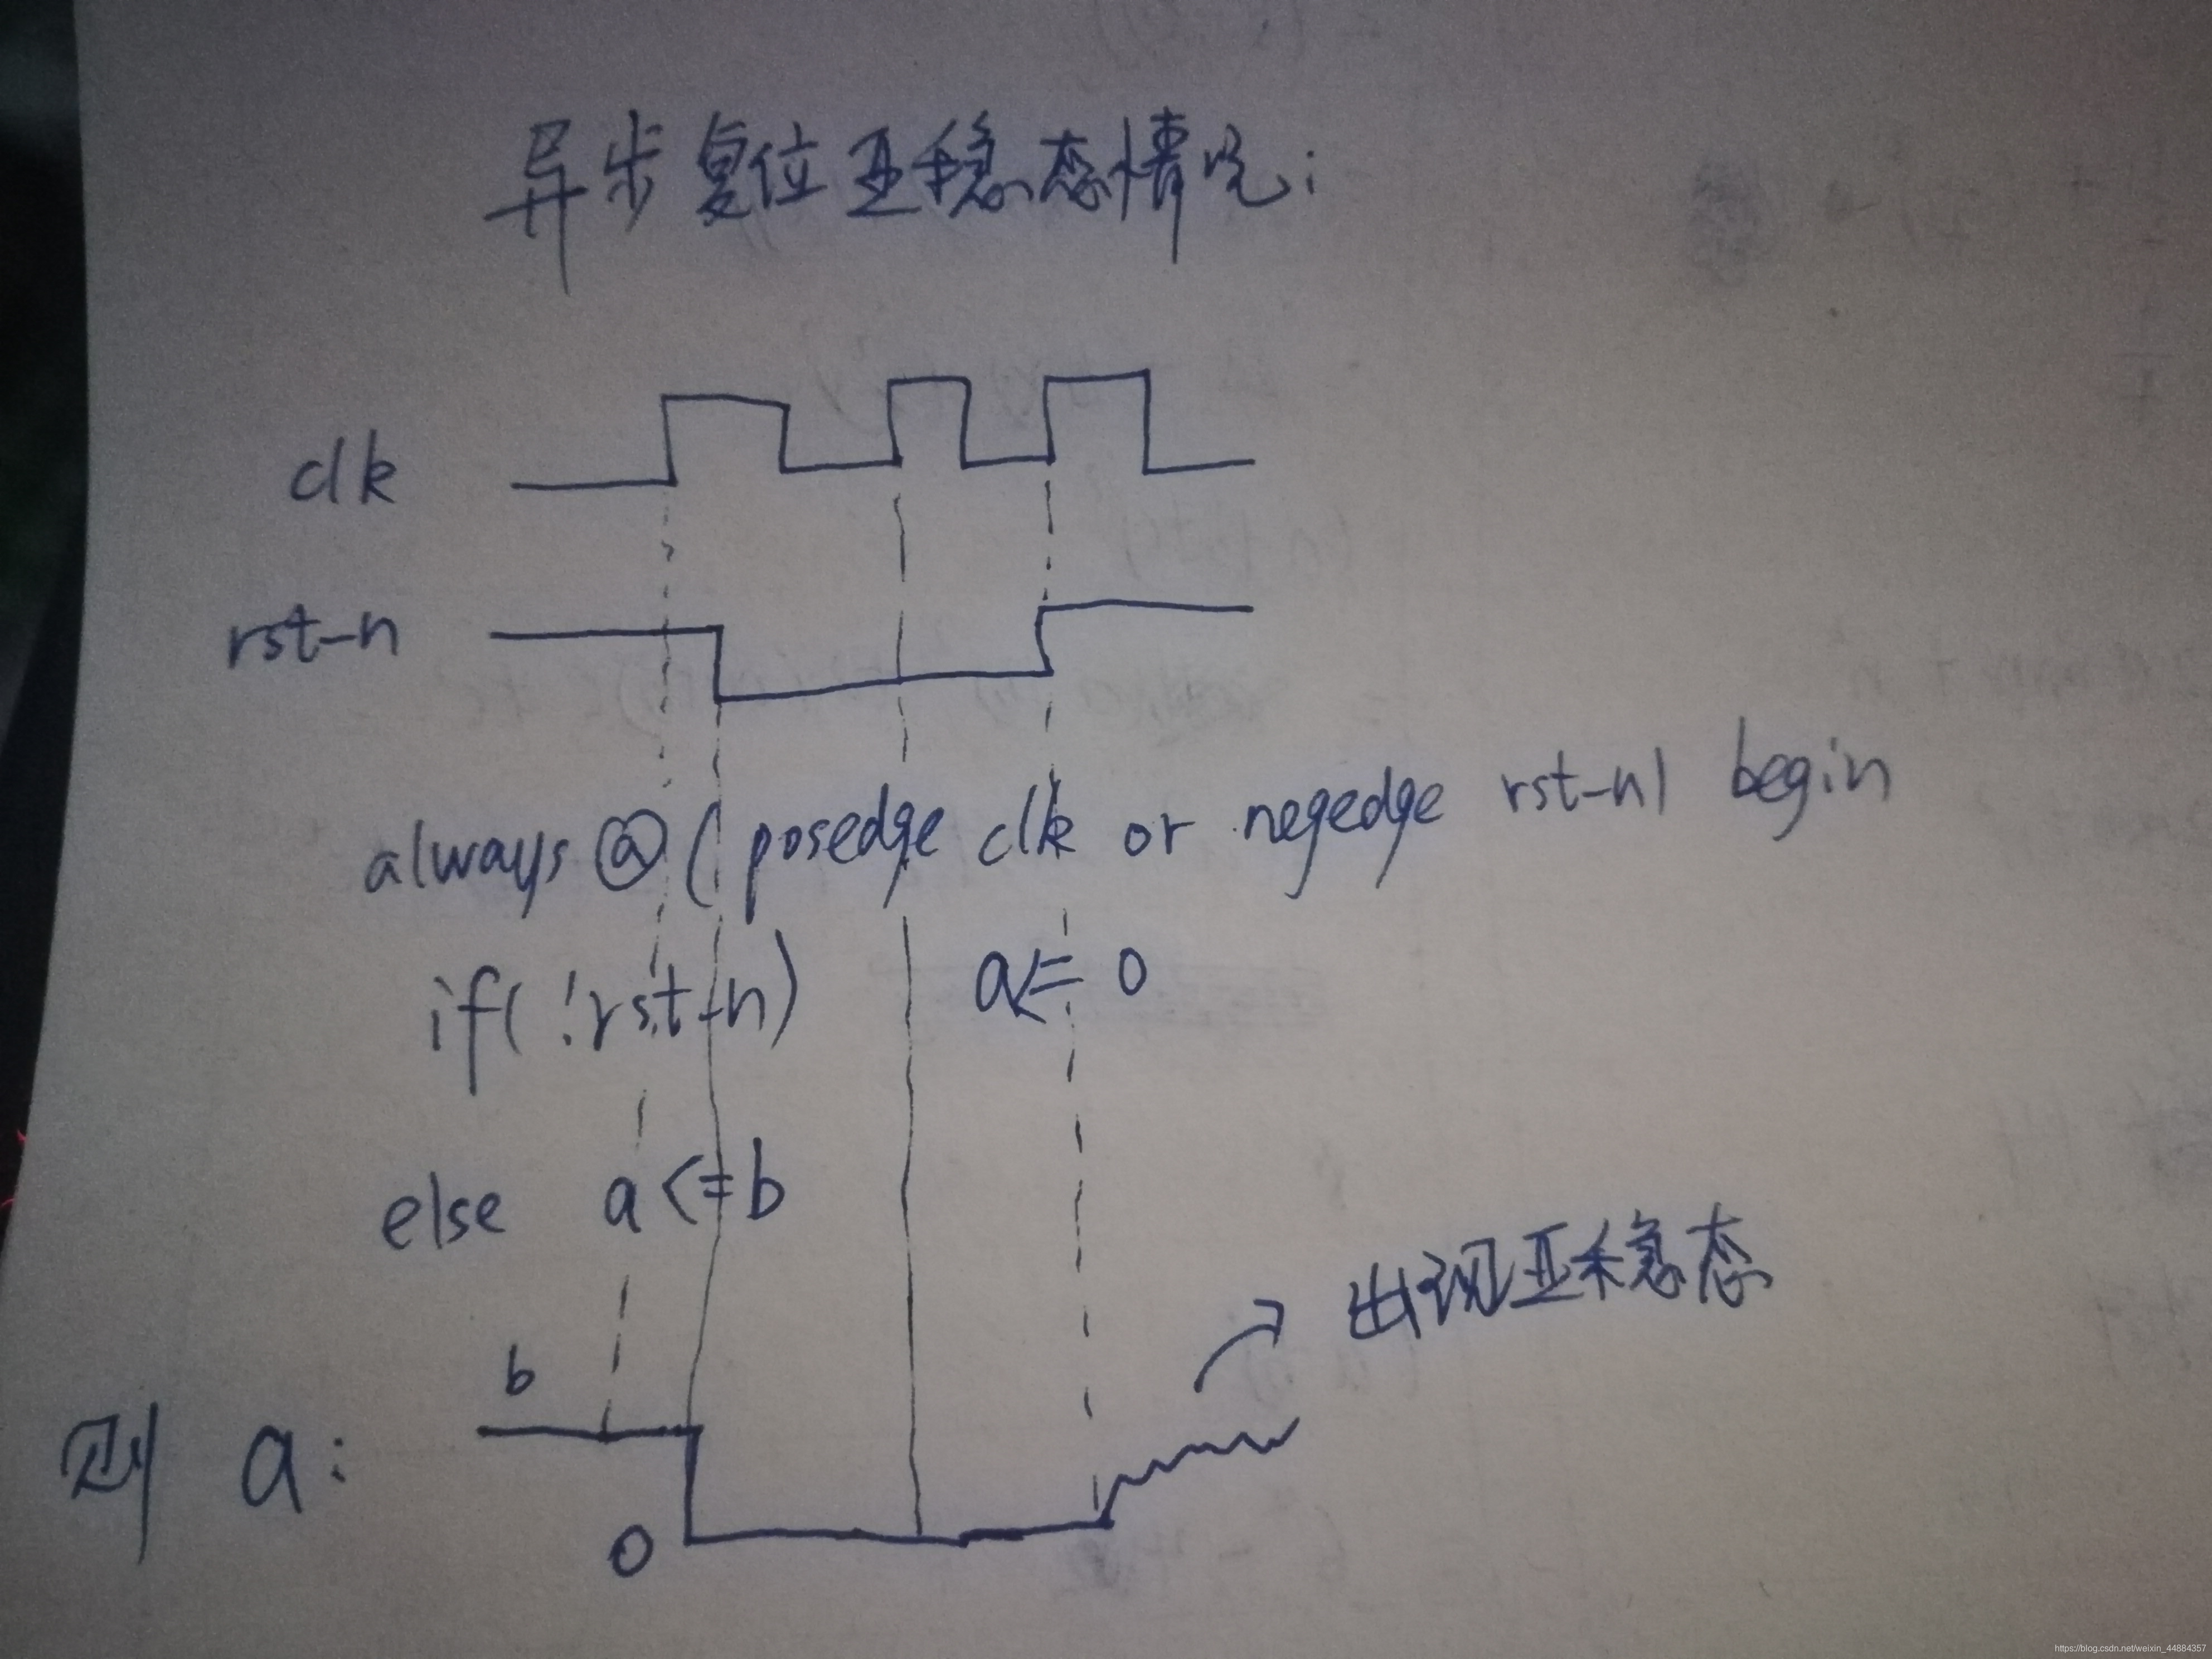 异步复位亚稳态情况:
clk
rst-n
always @ ( posedge clk or negedge rst-n) begin
if( !rst-n) a<= 0
else a <= b
出现亚稳态
b
则 a:
0
https://blog.csdn.net/weixin_44884357